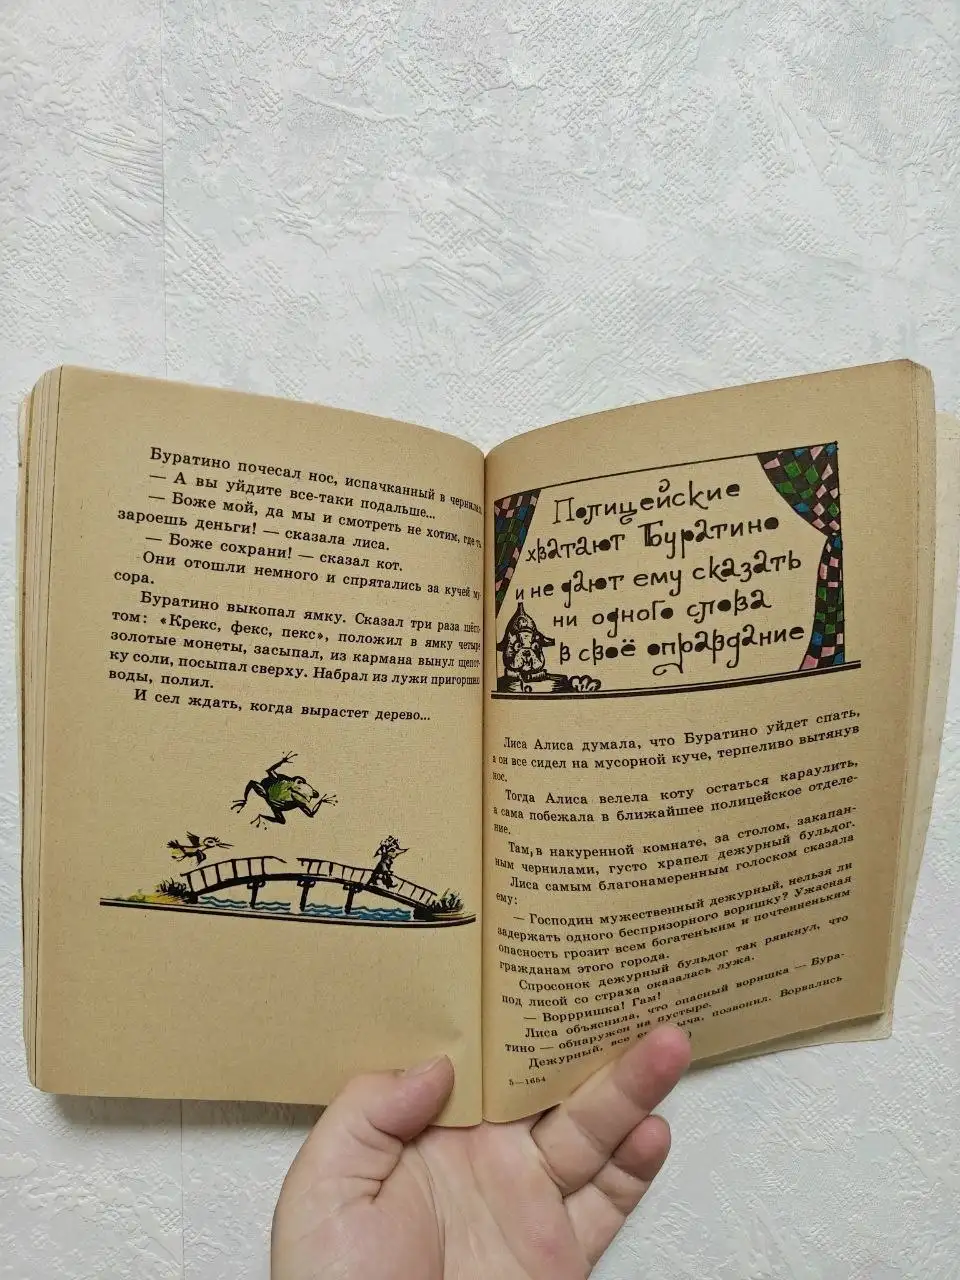 Буратино почесал нос, испачканный в чернилах.
— А вы уйдите все-таки подальше...
— Боже мой, да мы и смотреть не хотим, где ты
зароешь деньги! — сказала лиса.
— Боже сохрани! — сказал кот.
Они отошли немного и спрятались за кучей му-
сора.
Буратино выкопал ямку. Сказал три раза шёпо-
том: «Крекс, фекс, пекс», положил в ямку четыре
золотые монеты, засыпал, из кармана вынул щепот-
ку соли, посыпал сверху. Набрал из лужи пригоршню
воды, полил.
И сел ждать, когда вырастет дерево...
Полицейские
хватают Буратино
и не дают ему сказать
ни одного слова
в своё оправдание
Лиса Алиса думала, что Буратино уйдет спать,
а он все сидел на мусорной куче, терпеливо вытянув
нос.
Тогда Алиса велела коту остаться караулить,
а сама побежала в ближайшее полицейское отделе-
ние.
Там, в накуренной комнате, за столом, закапан-
ным чернилами, густо храпел дежурный бульдог.
Лиса самым благонамеренным голоском сказала
ему:
— Господин мужественный дежурный, нельзя ли
задержать одного беспризорного воришку? Ужасная
опасность грозит всем богатеньким и почтенненьким
гражданам этого города.
Спросонок дежурный бульдог так рявкнул, что
под лисой со страха оказалась лужа.
— Воррришка! Гам!
Лиса объяснила, что опасный воришка — Бура-
тино — обнаружен на пустыре.
Дежурный, все позвонил. Ворвались
5—1654